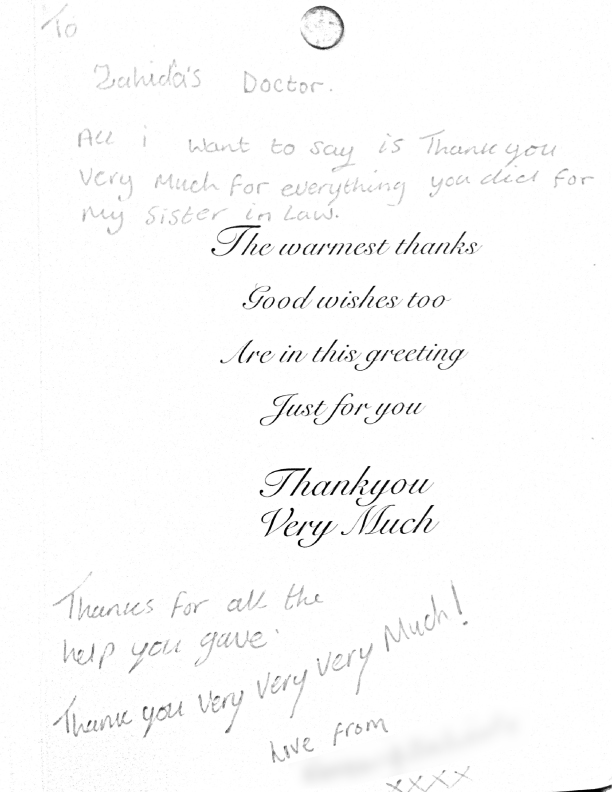 To
Zahida's Doctor.
All i want to say is Thank you
Very Much for everything you did for
my sister in Law.
The warmest thanks
Good wishes too
Are in this greeting
Just for you
Thankyou
Very Much
Thanks for all the
help you gave.
Thank you very very very very Much!
love from
xxxx